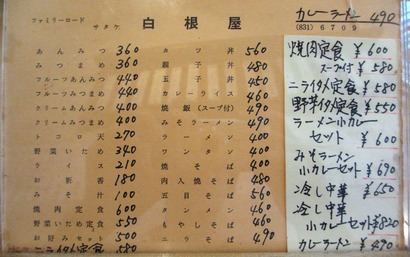 ファミリーロード
サタケ
白根屋
カレーラーメン 490
(831) 6709
あんみつ 360
みつまめ 360
フルーツあんみつ 440
フルーツみつまめ 440
クリームあんみつ 400
クリームみつまめ 400
トコロ天 270
野菜いため 340
ライス 210
お新香 180
みそ汁 100
焼肉定食 600
野菜いため定食 550
お好みセット 500
ニライタメ定食 580
カツ丼 560
親子丼 480
玉子丼 450
カレーライス 460
焼飯(スープ付) 490
みそラーメン 490
ラーメン 400
ワンタン 400
焼そば 400
肉入焼そば 480
五目そば 560
タンメン 460
もやしそば 460
ニラそば 490
焼肉定食 ¥600
スープ付 ¥580
ニライタメ定食 ¥580
野菜イタメ定食 ¥550
ラーメン小カレー
セット ¥600
みそラーメン
小カレーセット ¥690
冷し中華 ¥650
冷し中華
小カレーセット ¥820
カレーラーメン ¥490